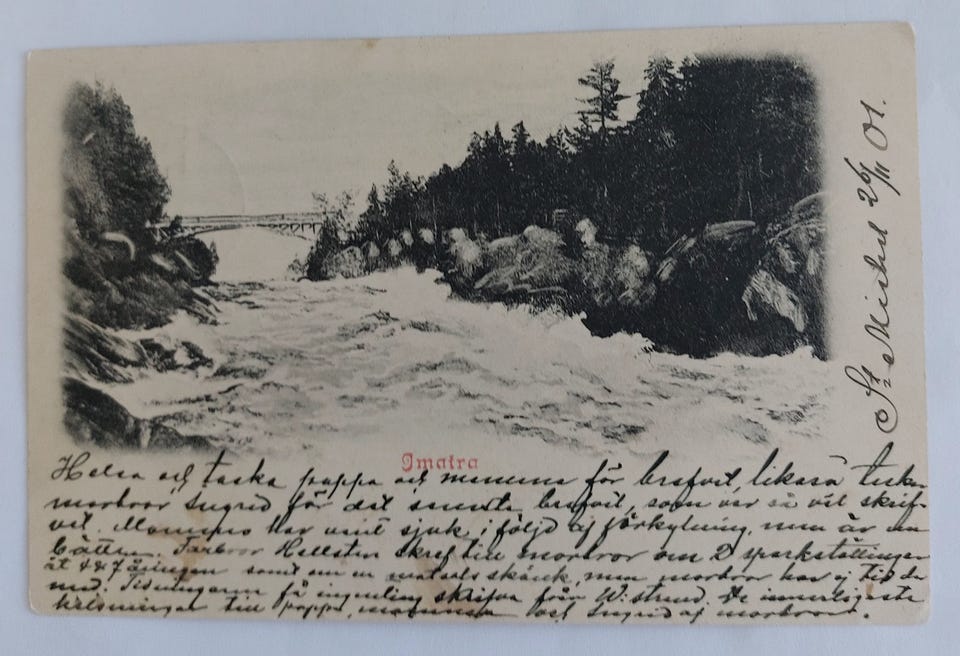 St. Michel 26/11 01.
Imatra
Helsa och tacka pappa och mamma för brefvet, likaså
morbror Ingrid för det senaste brefvet, som var så väl skrif-
vet. Mommo har varit sjuk, i följd af förkylning, men är nu
bättre. Farbror Hellsten skref till morbror om 2 sparkstöttingar
åt samt om en skänk, men morbror har ej tid der
med. Tidningarna få ingenting skrifva från W:strand. De innerligaste
helsningar till pappa, mamma och Ingrid af morbror.